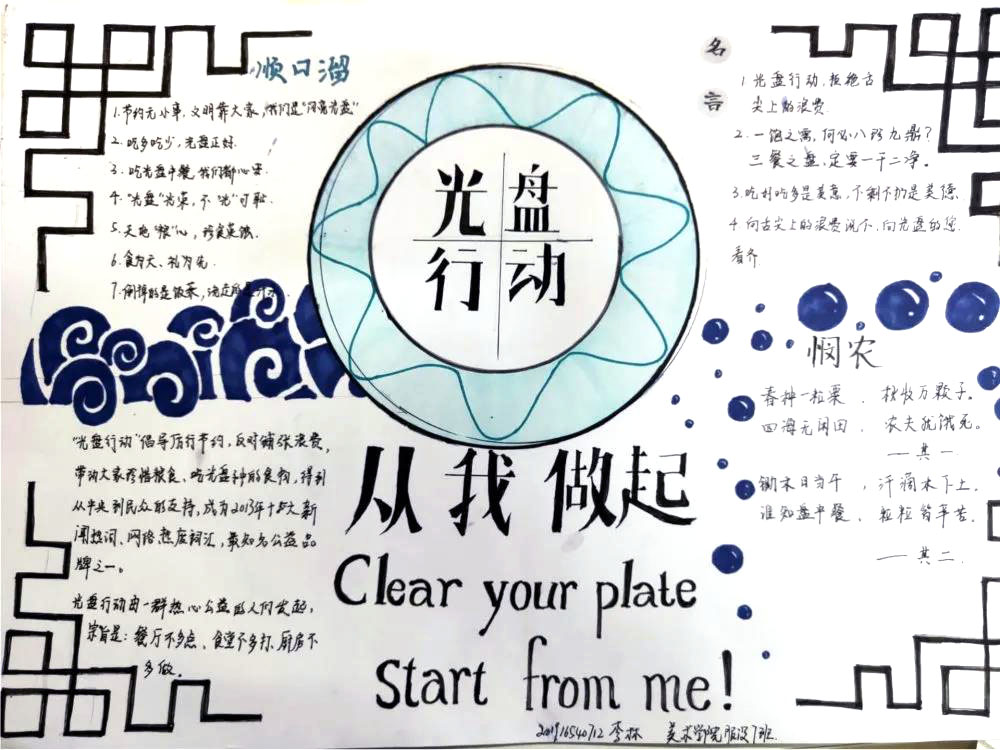 顺口溜
1.节约无小事,文明靠大家,我们是"闪亮光盘"
2.吃多吃少,光盘正好.
3.吃光盘中餐,我们都心安.
4."光盘"光荣,不"光"可耻.
5.天地"粮"心,珍食莫餸.
6.食为天、礼为先.
7.倒掉的是饭菜,
光盘
行动
名言
1.光盘行动,拒绝舌
尖上的浪费.
2.一饱之需,何必八珍九鼎?
三餐之盘,定要一干二净。
3.吃好吃多是美意,不剩不扔是美德.
4.向舌尖上的浪费说不,向光盘的您
看齐
悯农
春种一粒粟,秋收万颗子。
四海无闲田,农夫犹饿死。
——其一
锄禾日当午,汗滴禾下土。
谁知盘中餐,粒粒皆辛苦。
——其二.
"光盘行动"倡导厉行节约,反对铺张浪费,
带动大家珍惜粮食、吃光盘中的食物,得到
从中央到民众的支持,成为2013年十大新
闻热词、网络热度词汇,最知名公益品
牌之一。
光盘行动由一群热心公益的人们发起,
宗旨是:餐厅不多点、食堂不多打、厨房不
多做。
从我做起
Clear your plate
Start from me!
李林 美术学院服设1班